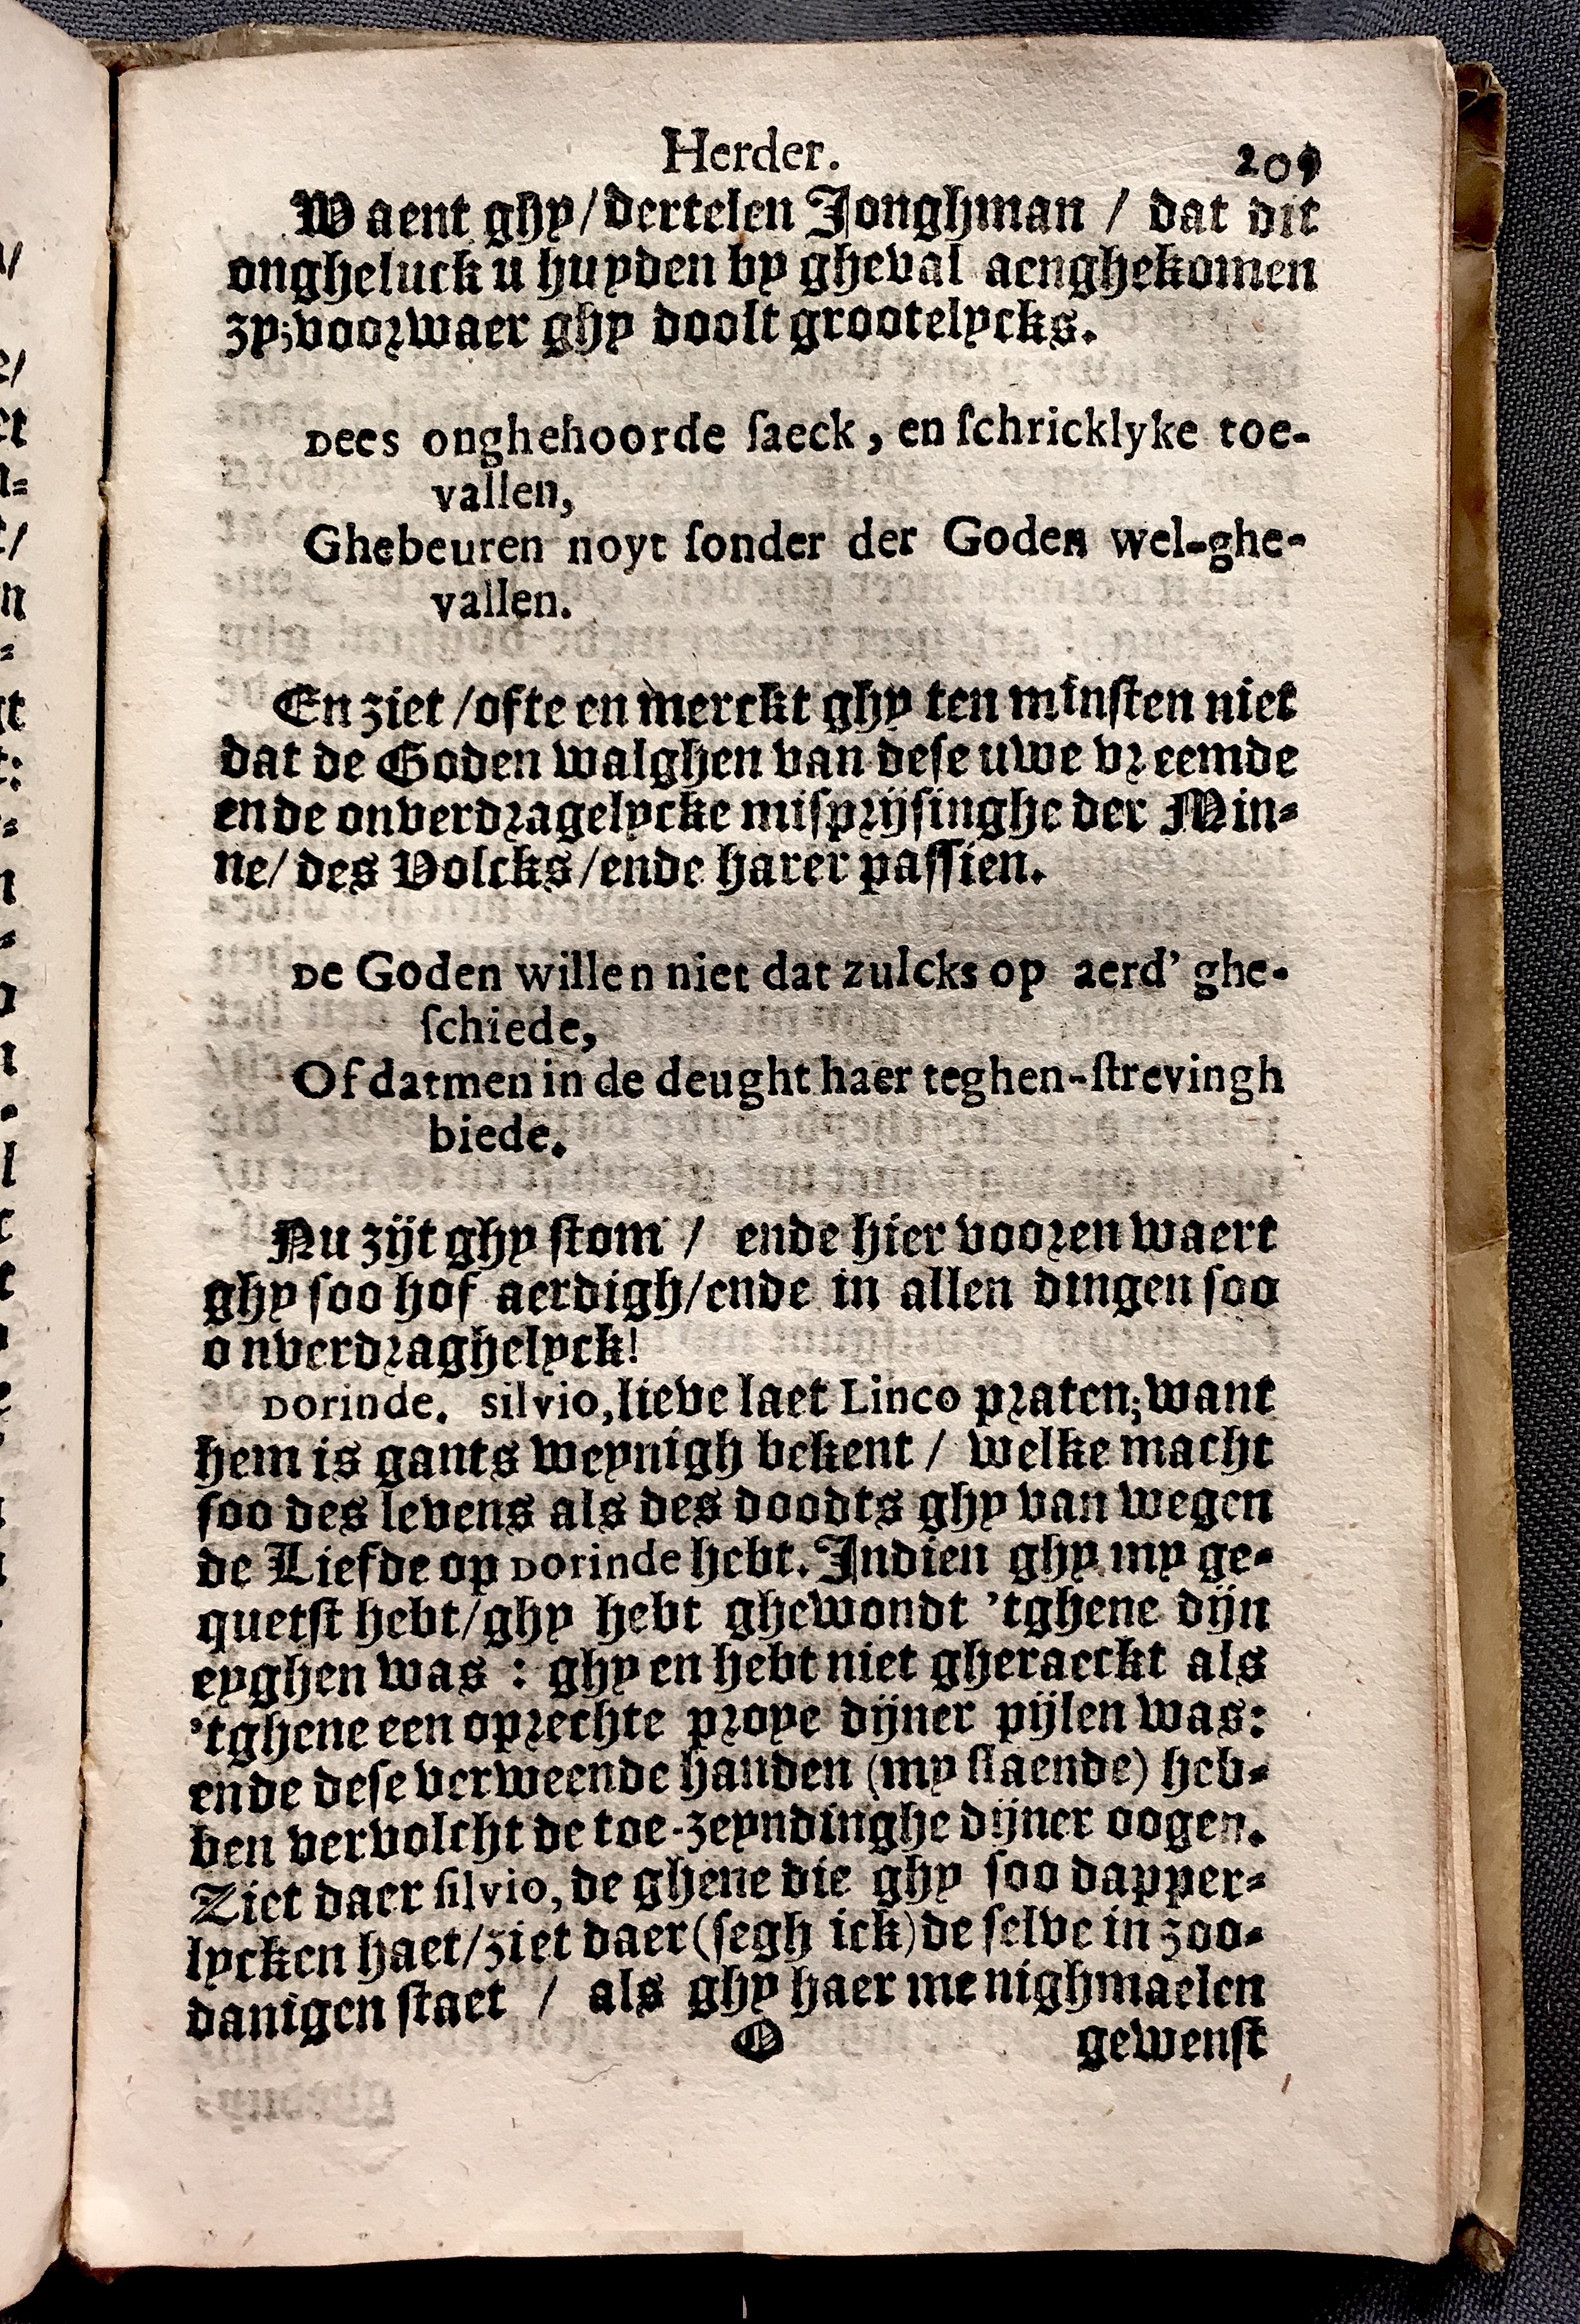 Herder. 209
Waent ghy/dertelen Jonghman / dat dit
ongheluck u huyden by gheval aenghekomen
zy;voorwaer ghy doolt grootelycks.
Dees onghehoorde ſaeck, en ſchricklyke toe-
vallen,
Ghebeuren noyt ſonder der Goden wel-ghe-
vallen.
En ziet /ofte en merckt ghy ten minſten niet
dat de Goden walghen van deſe uwe vreemde
ende onverdragelycke miſprijſinghe der Min-
ne/ des Volcks /ende harer paſſien.
De Goden willen niet dat zulcks op aerd' ghe-
ſchiede,
Of datmen in de deught haer teghen-ſtrevingh
biede.
Nu zijt ghy ſtom / ende hier vooren waert
ghy ſoo hof aerdigh/ende in allen dingen ſoo
onverdraghelyck!
Dorinde. Silvio,lieve laet Linco praten;want
hem is gants weynigh bekent / welke macht
ſoo des levens als des doodts ghy van wegen
de Liefde op Dorinde hebt. Indien ghy my ge-
quetſt hebt/ghy hebt ghewondt 'tghene dijn
eyghen was : ghy en hebt niet gheraeckt als
'tghene een oprechte proye dijner pijlen was:
ende deſe verweende handen (my ſlaende) heb-
ben vervolcht de toe-zeyndinghe dijner oogen.
Ziet daer ſilvio, de ghene die ghy ſoo dapper-
lycken haet/ziet daer(ſegh ick)de ſelve in zoo-
danigen ſtaet / als ghy haer menighmaelen
O gewenſt